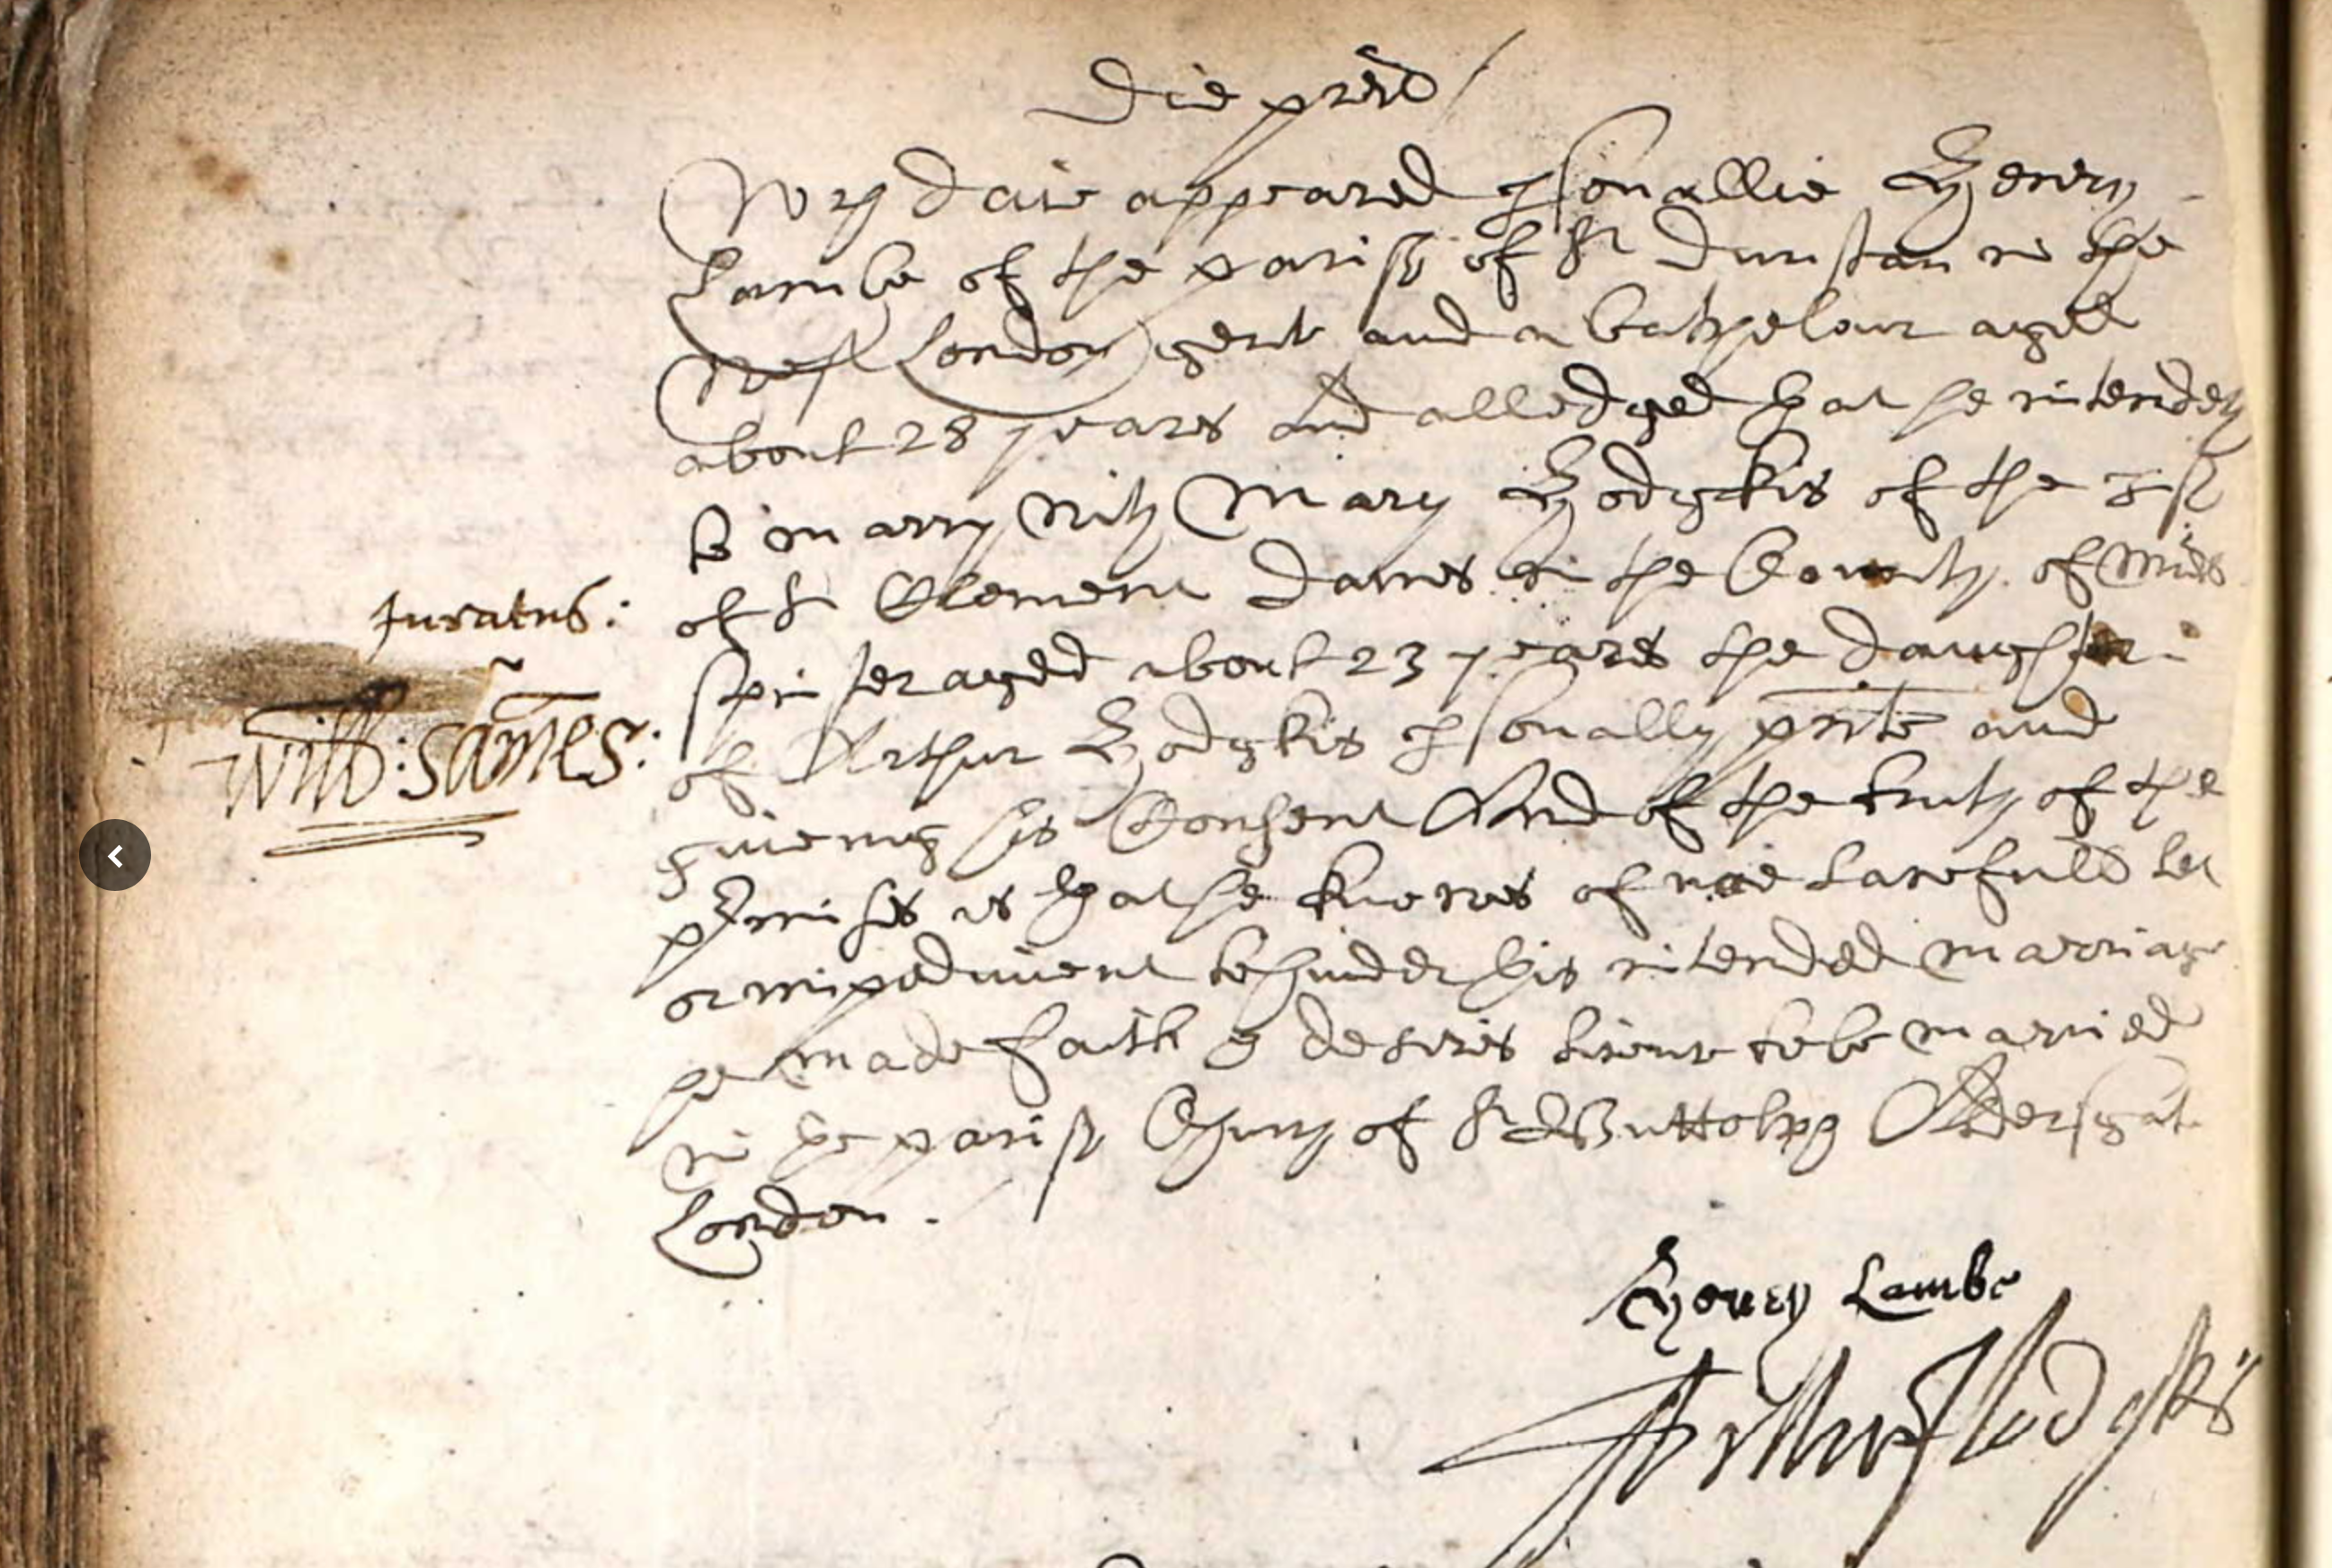 Die pred
Wch daie appeared psonallie Henry
Lambe of the parish of St Dunstan in the
West London gent and a batchelour aged
about 28 yeares and alledged that he intendeth
to marry with Mary Hodgkis of the psh
of St Clement Danes in the County of Midd
spinster aged about 23 yeares the daughter
Juratus:
Will: Sames:
of Arthur Hodgkis psonally pnte and
giueing his Consent And of the truth of the
pmises & that he knowes of noe lawfull let
or impediment to hinder this intended marriage
he made faith & desires licence to be married
in the parish Church of St Buttolph Aldersgat
London.
Henry Lambe
Arthur Hodgkis